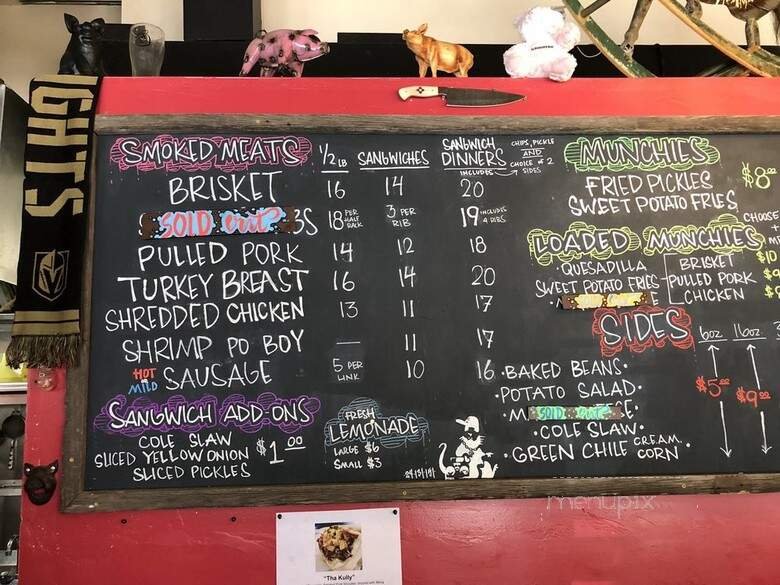 IGHTS
SMOKED MEATS 1/2 LB SANDWICHES SANDWICH DINNERS INCLUDES CHIPS, PICKLE AND CHOICE of 2 SIDES
BRISKET 16 14 20
SOLD out BS 18 PER HALF RACK 3 PER RIB 19 INCLUDES 4 RIBS
PULLED PORK 14 12 18
TURKEY BREAST 16 14 20
SHREDDED CHICKEN 13 11 17
SHRIMP PO BOY — 11 17
HOT MILD SAUSAGE 5 PER LINK 10 16
SANDWICH ADD-ONS
COLE SLAW
SLICED YELLOW ONION $1.00
SLICED PICKLES
FRESH
LEMONADE
LARGE $6
SMALL $3
MUNCHIES
FRIED PICKLES $8
SWEET POTATO FRIES
LOADED MUNCHIES CHOOSE
QUESADILLA BRISKET $10
SWEET POTATO FRIES PULLED PORK
CHICKEN
SIDES 6oz 16oz
•BAKED BEANS•
•POTATO SALAD• $5.00 $9.00
•M SOLD out E•
•COLE SLAW•
•GREEN CHILE CREAM CORN•
menupix
"Tha Kully"